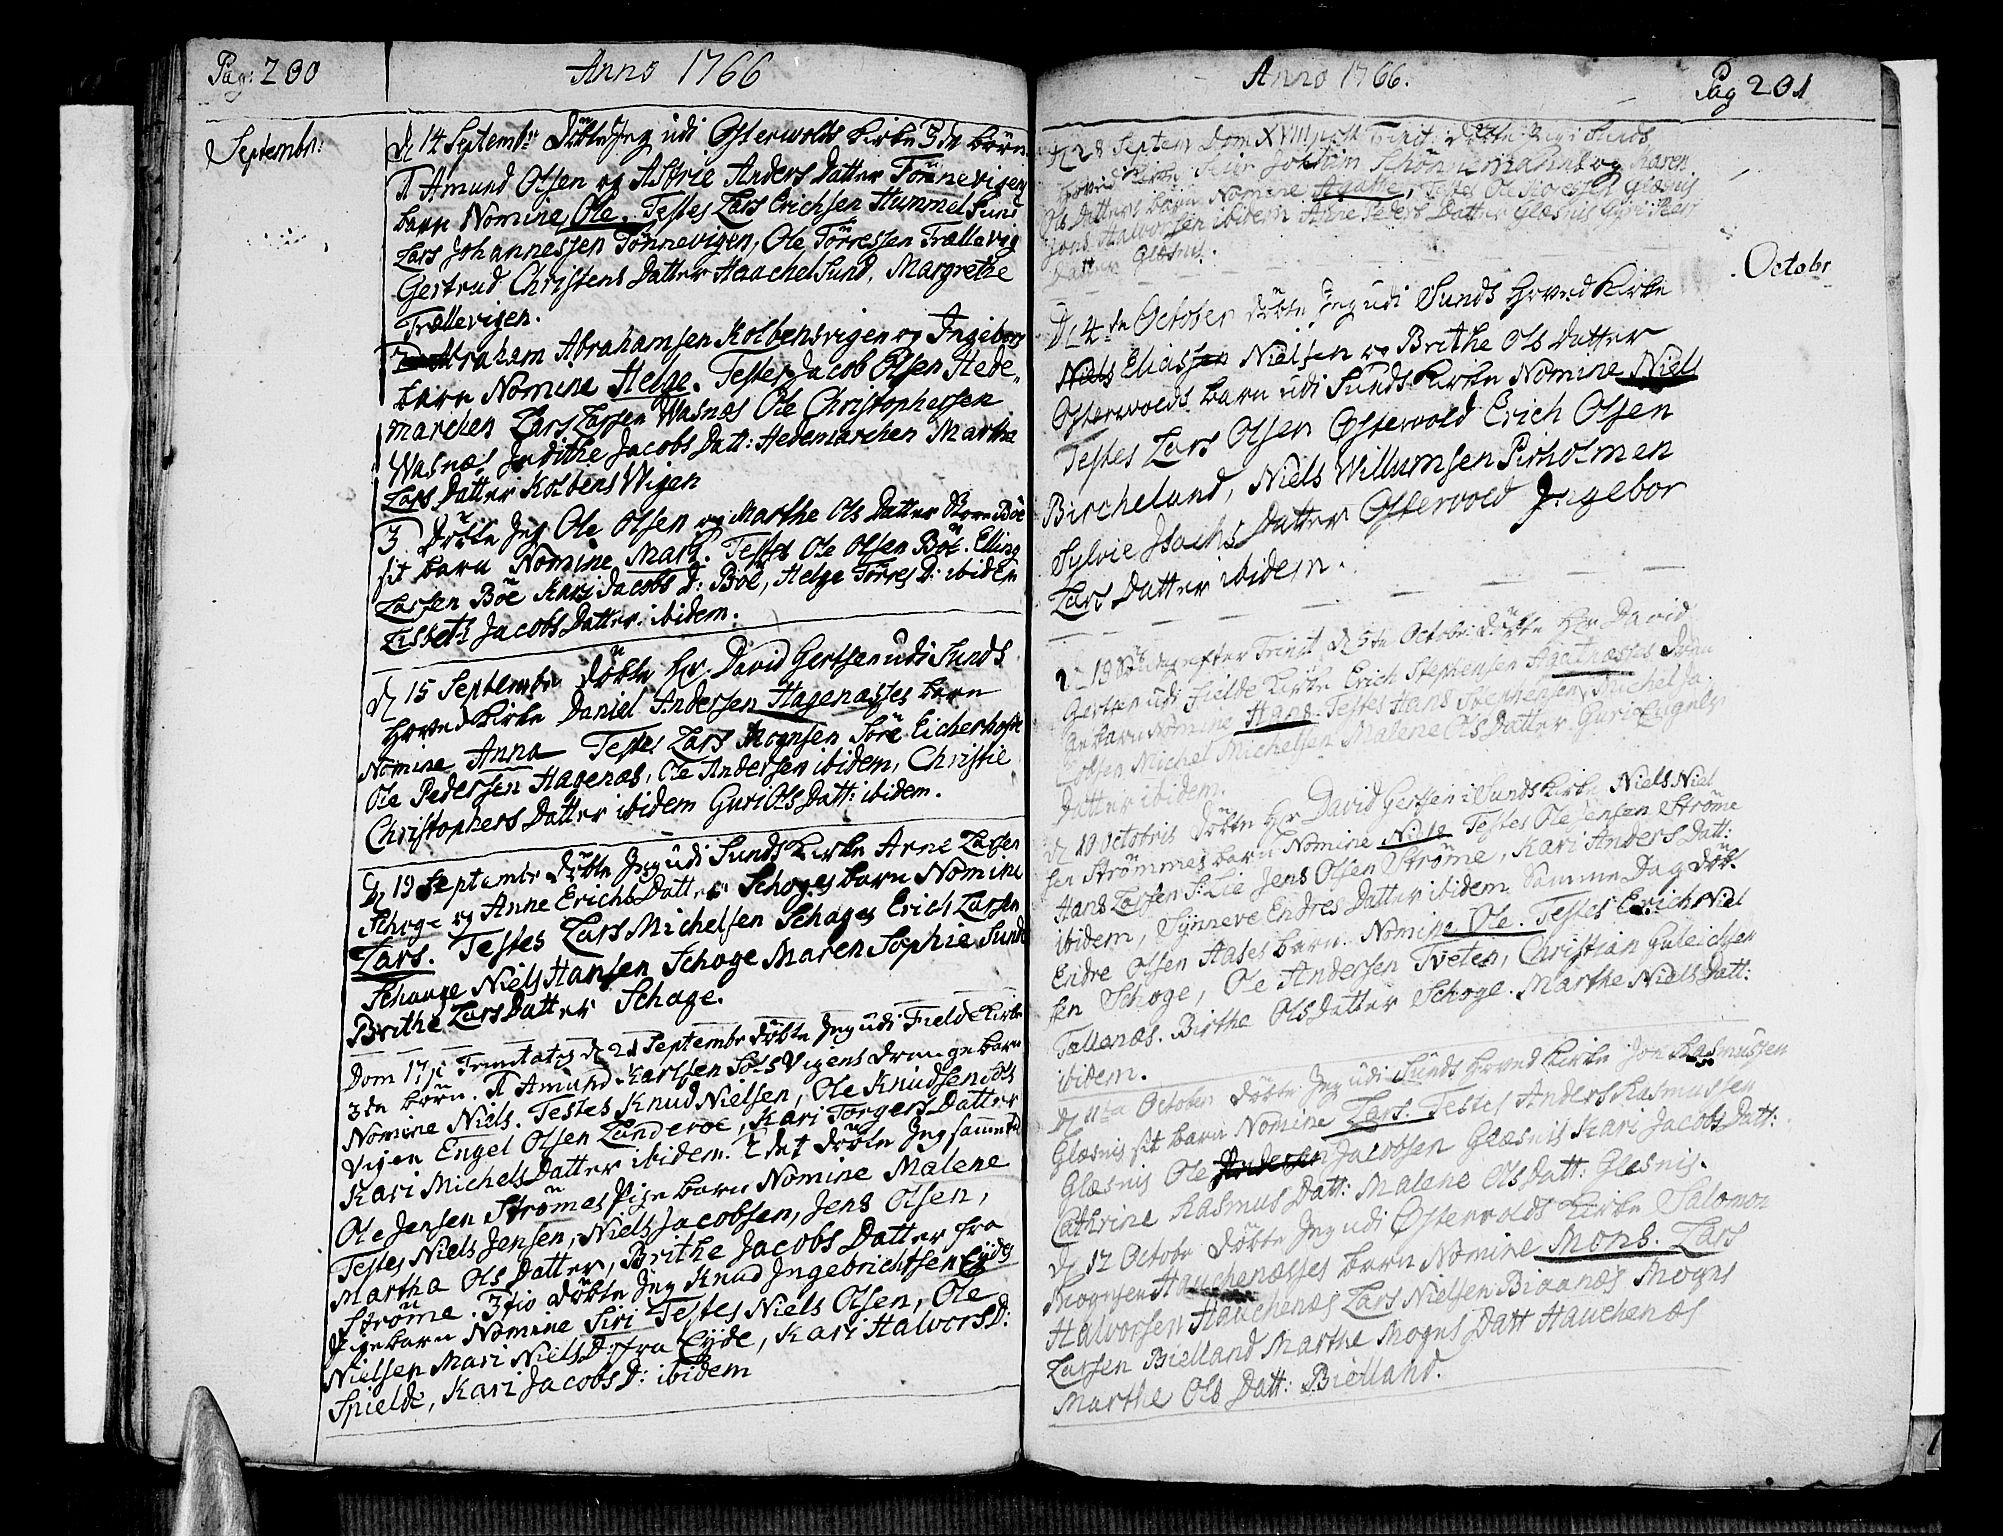 Pag: 200
Anno 1766
Septembr:
d 14 Septembr: Döbte Jeg udi Osterwolds Kirke 3de börn
Amund Olsen og Astrie Anders Datter Tönnevigens
barn Nomine Ole. Testes Lars Erichsen Hummelsund
Lars Johannessen Tönnevigen, Ole Törressen Trællevig
Gertrud Christens Datter Haachelsund, Margrethe
Trællevigen.
Abraham Abrahamsen Kolbensvigen og Ingebor
barn Nomine Helge. Testes Jacob Olsen Hede-
marchen Lars Larsen Wasnæs Ole Christophersen
Wasnæs Judithe Jacobs Datt: Hedemarchen Marthe
Lars Datter Kolbens Wigen
3 Döbte Jeg Ole Olsen og Marthe Ols Datter Store Böe
sit barn Nomine Mari. Testes Ole Olsen Böe. Elling
Larsen Böe Kari Jacobs D: Böe, Helge Törres D: ibidem
Lisbeth Jacobs Datter ibidem.
d 15 Septembr döbte Hr. David Gertsen udi Sunds
Hoved Kirke Daniel Andersen Hagenæsses barn
Nomine Anna Testes Lars Mognsen Söre Eicherhofte
Ole Pedersen Hagenæs, Ole Andersen ibidem, Christie
Christophers Datter ibidem Guri Ols Datt: ibidem.
d 19 Septembr Döbte Jeg udi Sunds Kirke Arne Larsen
Schoge og Anne Erichs Datter Schoges barn Nomine
Lars. Testes Lars Michelsen Schages Erich Larsen
Schauge Niels Hansen Schoge Maren Sophie Sund
Brithe Lars Datter Schage.
Dom 17 p Trinitatis d 21 Septembr döbte Jeg udi Fielde Kirke
3de börn. Amund Karlsen Sols Vigens drenge barn
Nomine Niels. Testes Knud Nielsen, Ole Knudsen Sols
Vigen Engel Olsen Landeroe, Kari Torgers Datter
Kari Michels Datter ibidem. 2det döbte Jeg samme
Ole Jensen Strömes Pige barn Nomine Malene
Testes Niels Jensen, Niels Jacobsen, Jens Olsen,
Martha Ols Datter, Brithe Jacobs Datter fra
Ströme. 3tio döbte Jeg Knud Ingebrichtsen Eydes
Pige barn Nomine Siri Testes Niels Olsen, Ole
Nielsen Mari Niels D: fra Eyde, Kari Halvors D:
Spielde, Kari Jacobs D: ibidem
Anno 1766.
Pag 201
Octobr
d 28 Septem Dom XVIII post Trinit: döbte Jeg i Sunds
Hoved Kirke Jochim og Karen
Ols Datters barn Nomine Agathe, Testes Ole Glæsnis
Jens Halvorsen ibidem Anne Peders Datter Glæsnis
Datter Glæsnis.
D 4de October döbte Jeg udi Sunds Hoved Kirke
Niels Eliassen Nielsen og Brithe Ols Datter
Osterwolds barn udi Sunds Kirke Nomine Niels
Testes Lars Olsen Osterwold Erich Olsen
Bircheland, Niels Willumsen Pirholmen
Sylvie Isachs Datter Osterwold Ingebor
Lars Datter ibidem.
19 Söndag efter Trinit d 5te Octobr: döbte Hr David
Gertsen udi Fielde Kirke Erich Stephensen Agatnæsses
barn Nomine Hans. Testes Hans Stephensen, Michel Ja-
cobsen Michel Michelsen Malene Ols Datter Guri
Datter ibidem.
d 10 Octobris döbte Hr David Gertsen i Sunds Kirke Niels Niel
sen Strömmes barn Nomine Niels Testes Ole Jensen Ströme
Hans Larsen S: Lie Jens Olsen Ströme, Kari Anders Datt:
ibidem, Synneve Endres Datter ibidem Samme Dag döbt
Endre Olsen Hases barn. Nomine Ole. Testes Erich Niel
sen Schoge, Ole Andersen Tveten, Christian Guleichsen
Tællenæs. Birthe Ols Datter Schoge. Marthe Niels Datt:
ibidem.
d 11te October döbte Jeg udi Sunds Hoved Kirke Joe Rasmussen
Glæsnis sit barn Nomine Lars. Testes Anders Rasmussen
Glæsnis Ole Andersen Jacobsen Glæsnis Kari Jacobs Datt:
Cathrine Rasmus Datt: Malene Ols Datt: Glæsnis.
d 12 Octobr döbte Jeg udi Österwolds Kirke Salomon
Mognsen Hauchenæsses barn Nomine Mons. Lars
Halvorsen Hauchenæs Lars Nielsen Biaanæs Mogns
Larsen Bielland Marthe Mogns Datt Hauchenæs
Marthe Ols Datt: Bielland.